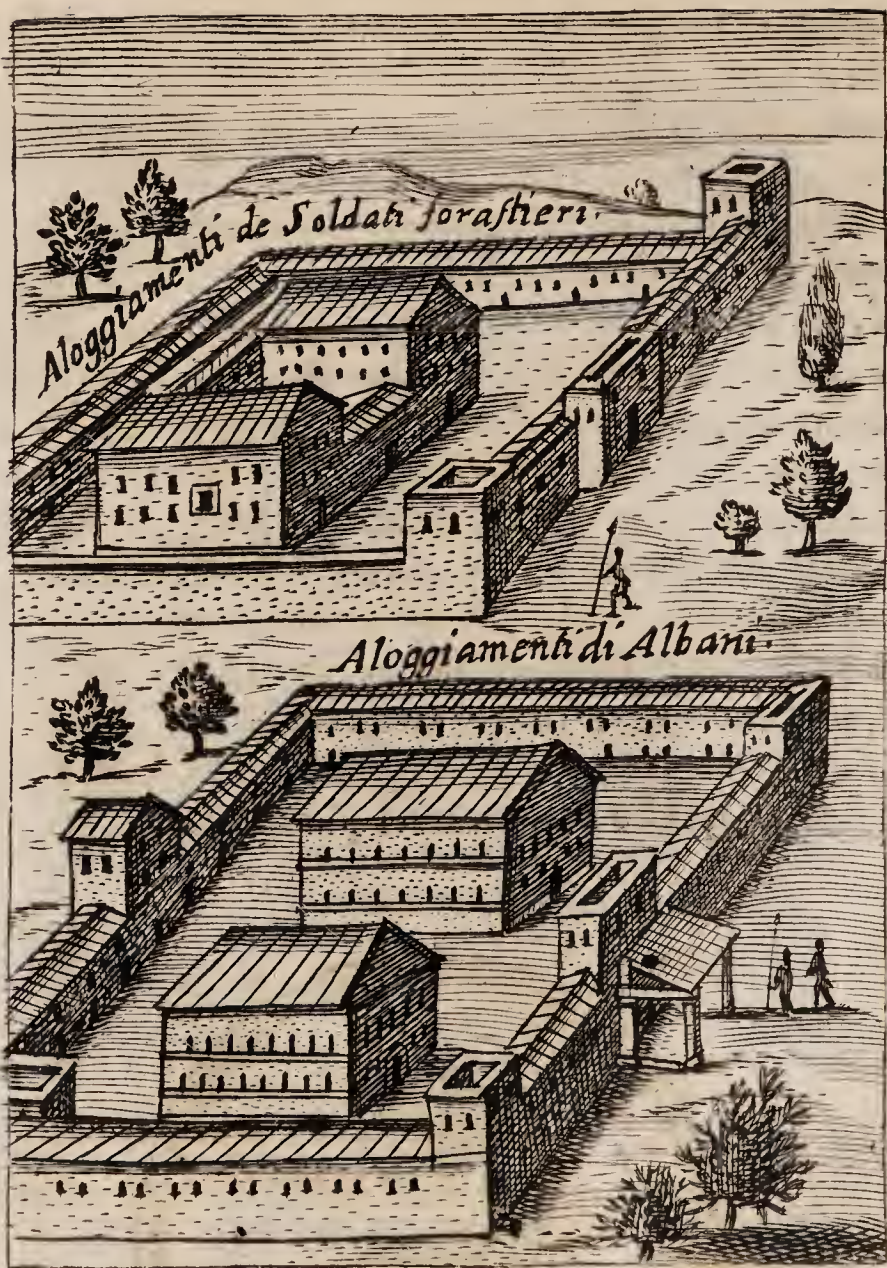 Aloggiamenti de Soldati foraſtieri.
Aloggiamenti di Albani.